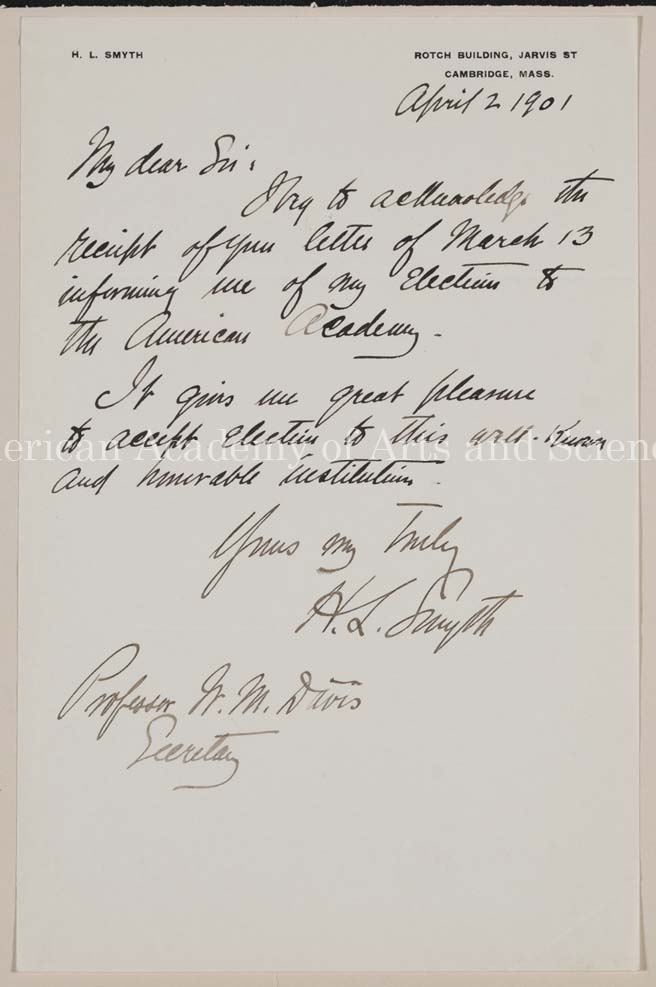 H. L. SMYTH
ROTCH BUILDING, JARVIS ST
CAMBRIDGE, MASS.
April 2 1901
My dear Sir:
I beg to acknowledge the
receipt of your letter of March 13
informing me of my election to
the American Academy.
It gives me great pleasure
to accept election to this well-known
American Academy of Arts and Scienc
and honorable institution.
Yours very truly
H. L. Smyth
Professor W. M. Davis
Secretary